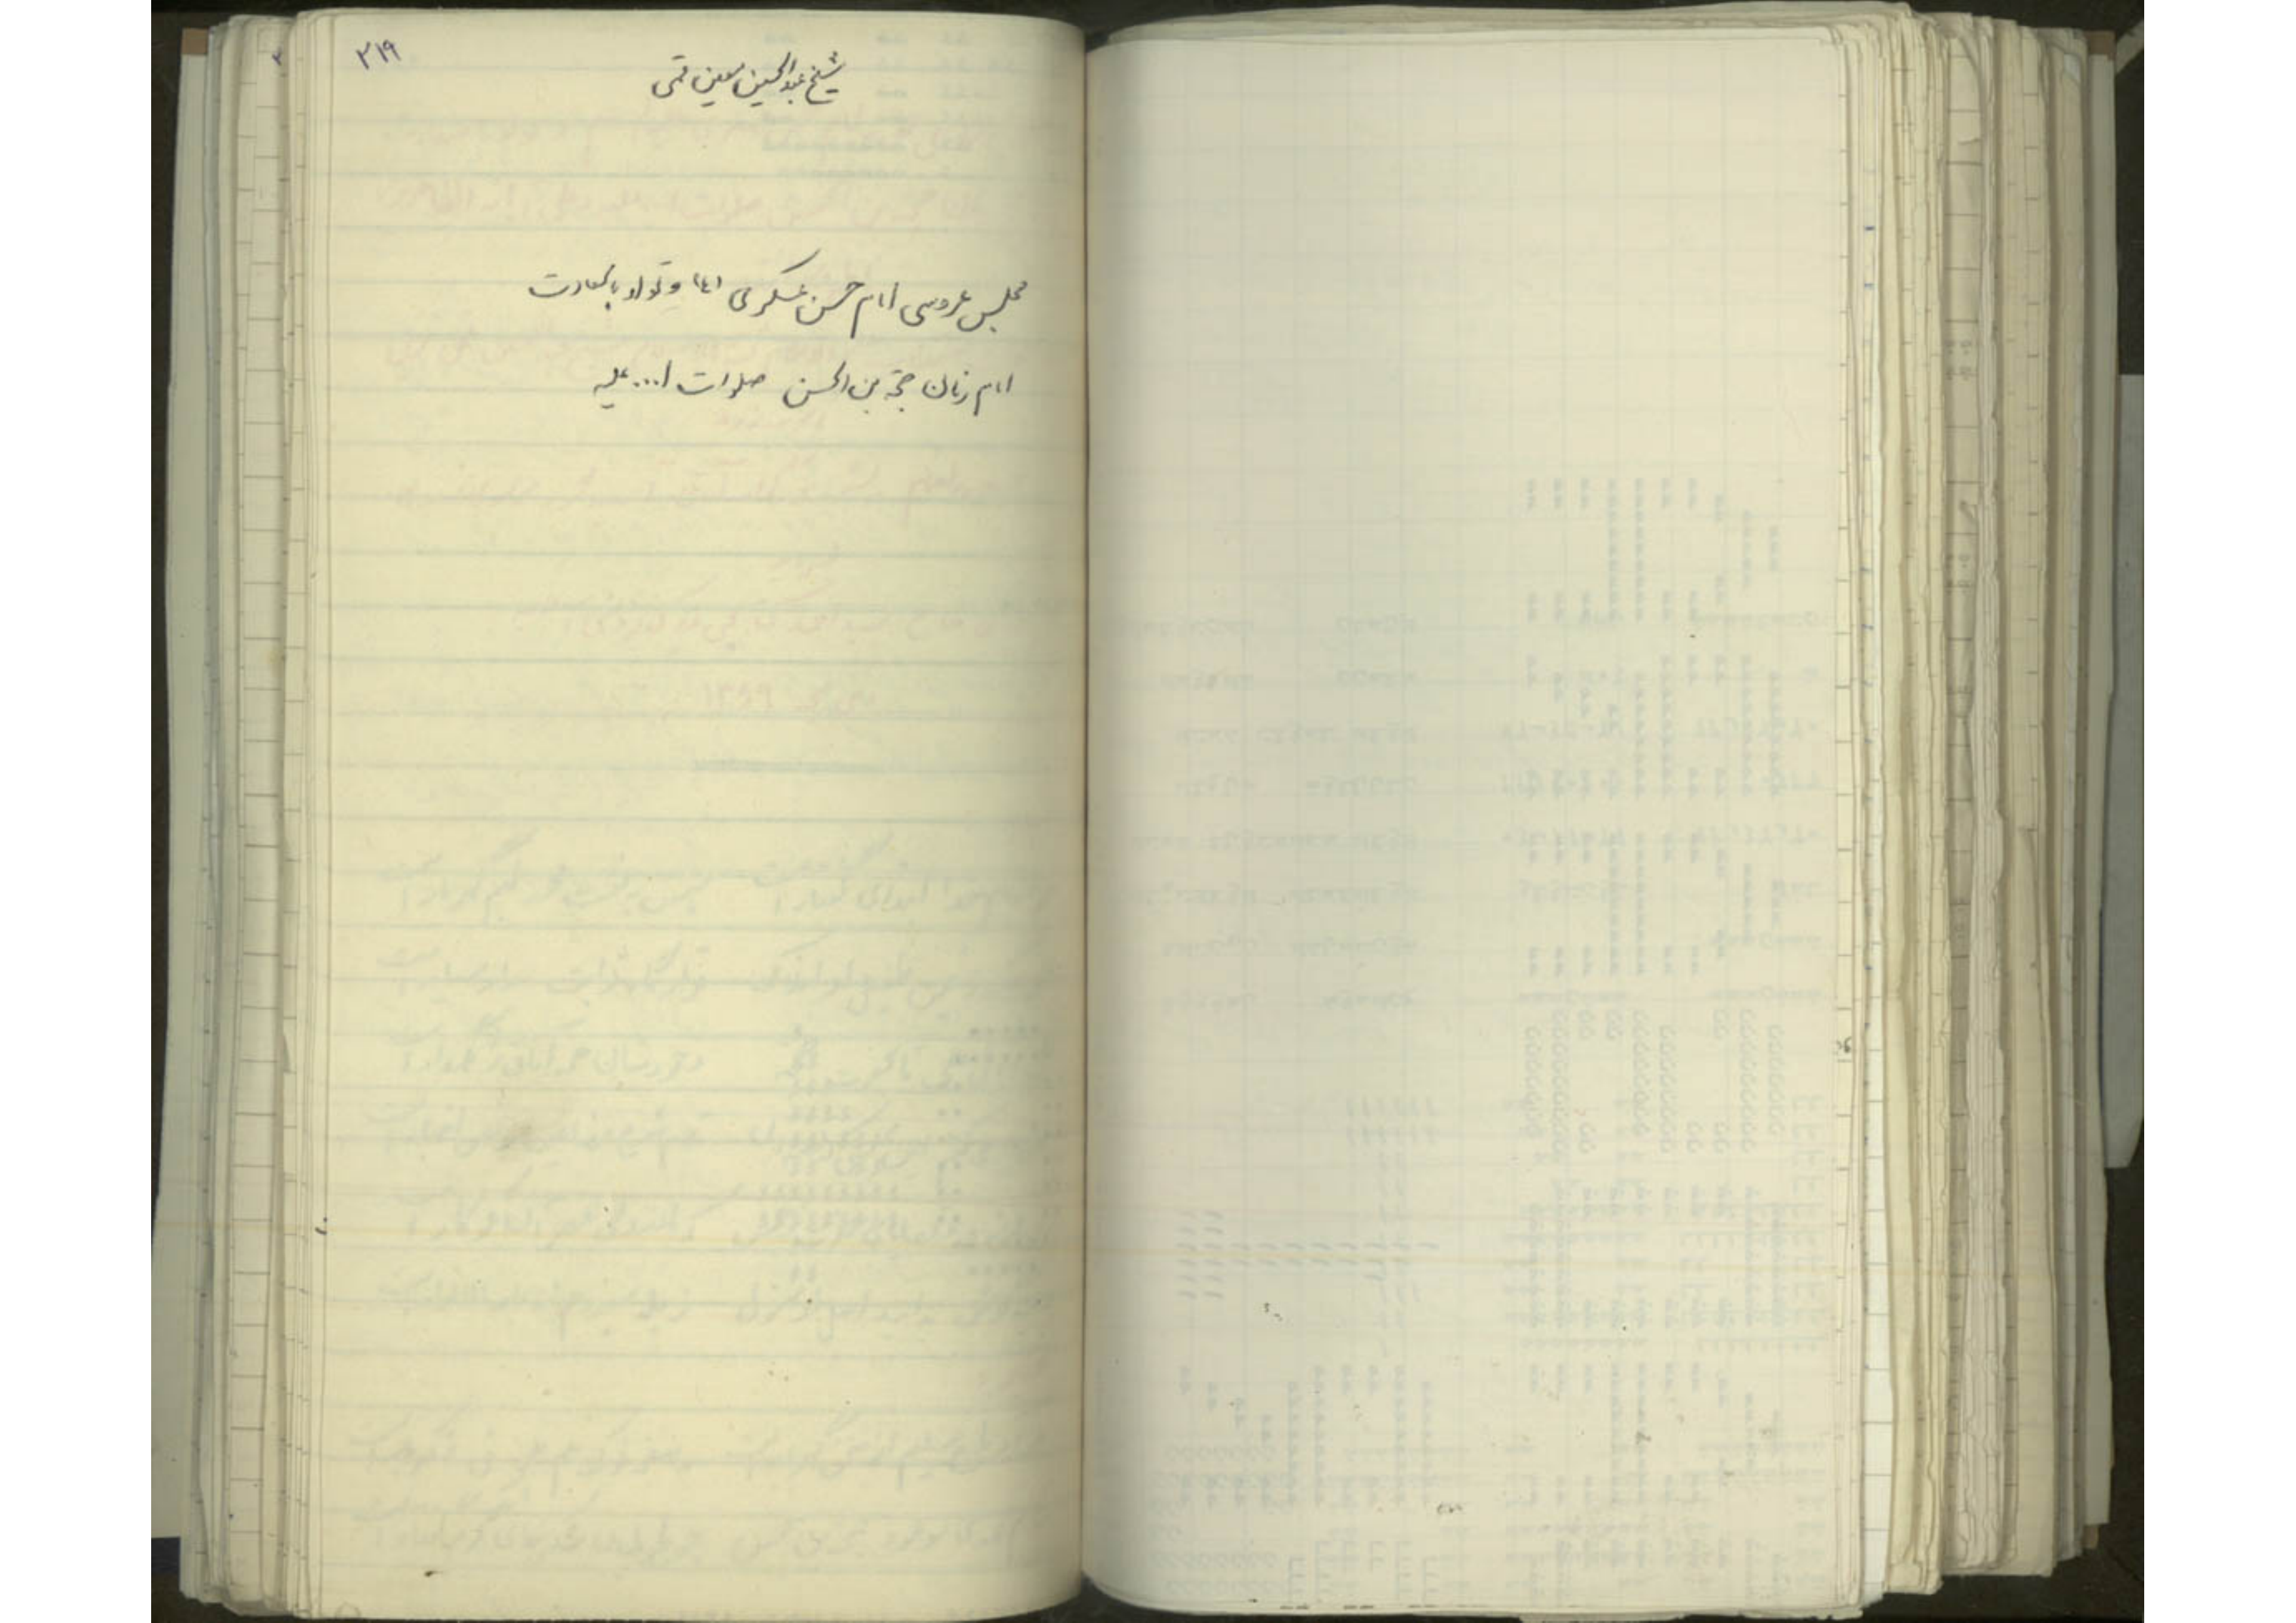 ۳۱۹
شیخ عبدالحسین معین قمی
مجلس عروسی امام حسن عسکری (ع) و تولد باسعادت
امام زمان حجة بن الحسن صلوات ا... علیه